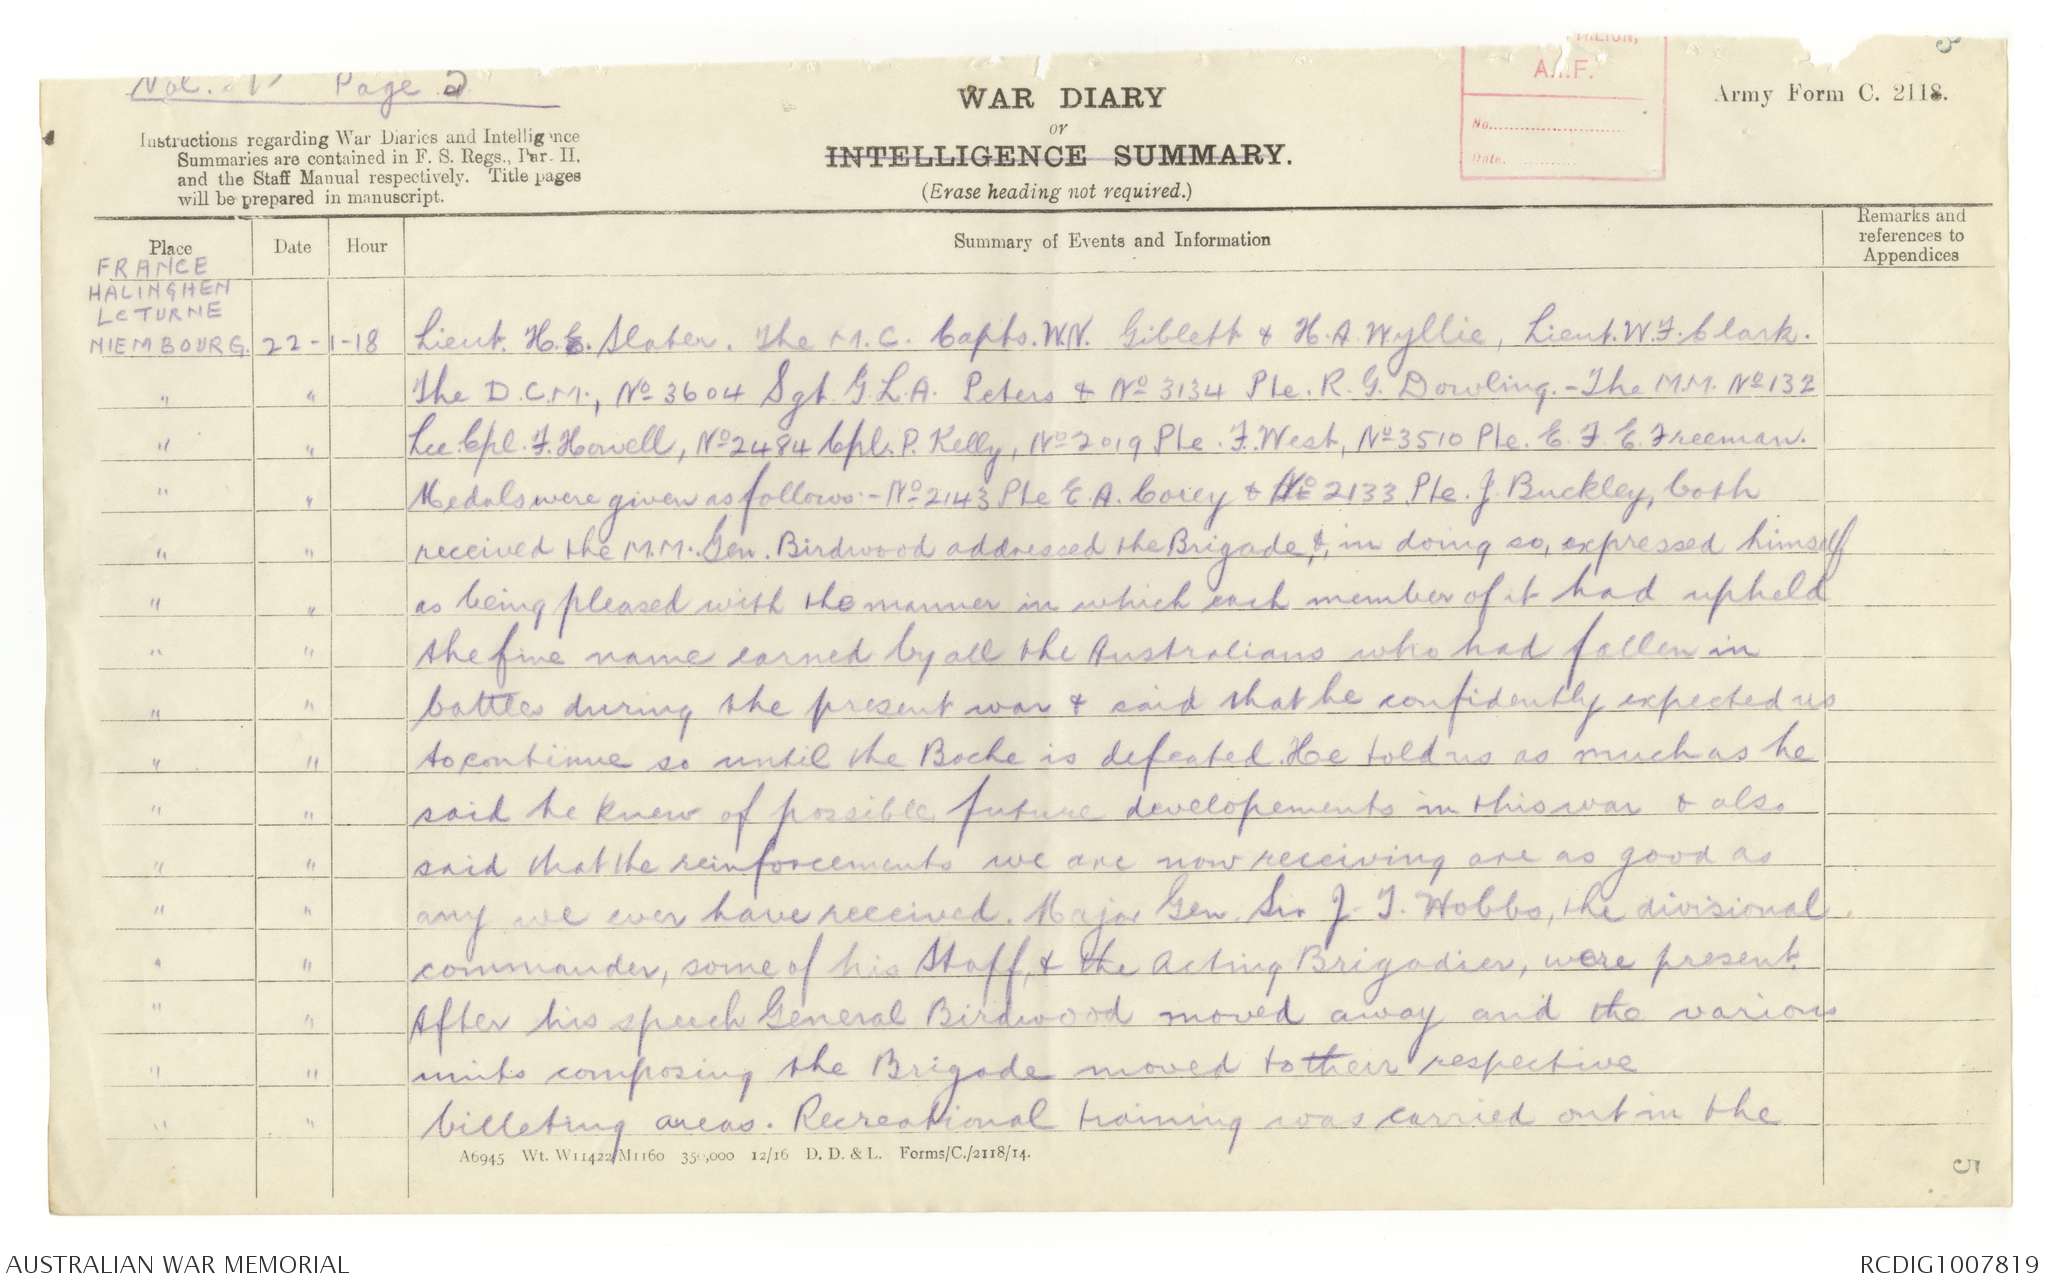 Vol. Page 2
WAR DIARY
or
INTELLIGENCE SUMMARY.
(Erase heading not required.)
Army Form C. 2118.
Instructions regarding War Diaries and Intelligence
Summaries are contained in F. S. Regs., Par. II.
and the Staff Manual respectively. Title pages
will be prepared in manuscript.
A.I.F.
No.
Date.
Place Date Hour Summary of Events and Information Remarks and references to Appendices
FRANCE
HALINGHEN
Le TURNE
NIEMBOURG. 22-1-18 Lieut. H.E. Slater. The M.C. Capts. W.N. Giblett & H.A. Wyllie, Lieut. W.F. Clark.
" " The D.C.M., No 3604 Sgt. G.L.A. Peters & No 3134 Pte. R. G. Dowling. - The M.M. No 132
" " Lce. Cpl. F. Howell, No 2484 Cpl. P. Kelly, No 2019 Pte. F. West, No 3510 Pte. E. F. E. Freeman.
" " Medals were given as follows:- No 2143 Pte E. A. Corey & No 2133 Pte. J. Buckley, both
" " received the M.M. Gen. Birdwood addressed the Brigade, &, in doing so, expressed himself
" " as being pleased with the manner in which each member of it had upheld
" " the fine name earned by all the Australians who had fallen in
" " battles during the present war & said that he confidently expected us
" " to continue so until the Boche is defeated. He told us as much as he
" " said he knew of possible future developements in this war & also
" " said that the reinforcements we are now receiving are as good as
" " any we ever have received. Major Gen. Sir J. T. Hobbs, the divisional
" " commander, some of his Staff, & the Acting Brigadier, were present.
" " After his speech General Birdwood moved away and the various
" " units composing the Brigade moved to their respective
" " billeting areas. Recreational training was carried out in the
A6945 Wt. W11422/M1160 350,000 12/16 D. D. & L. Forms/C./2118/14.
5
AUSTRALIAN WAR MEMORIAL
RCDIG1007819